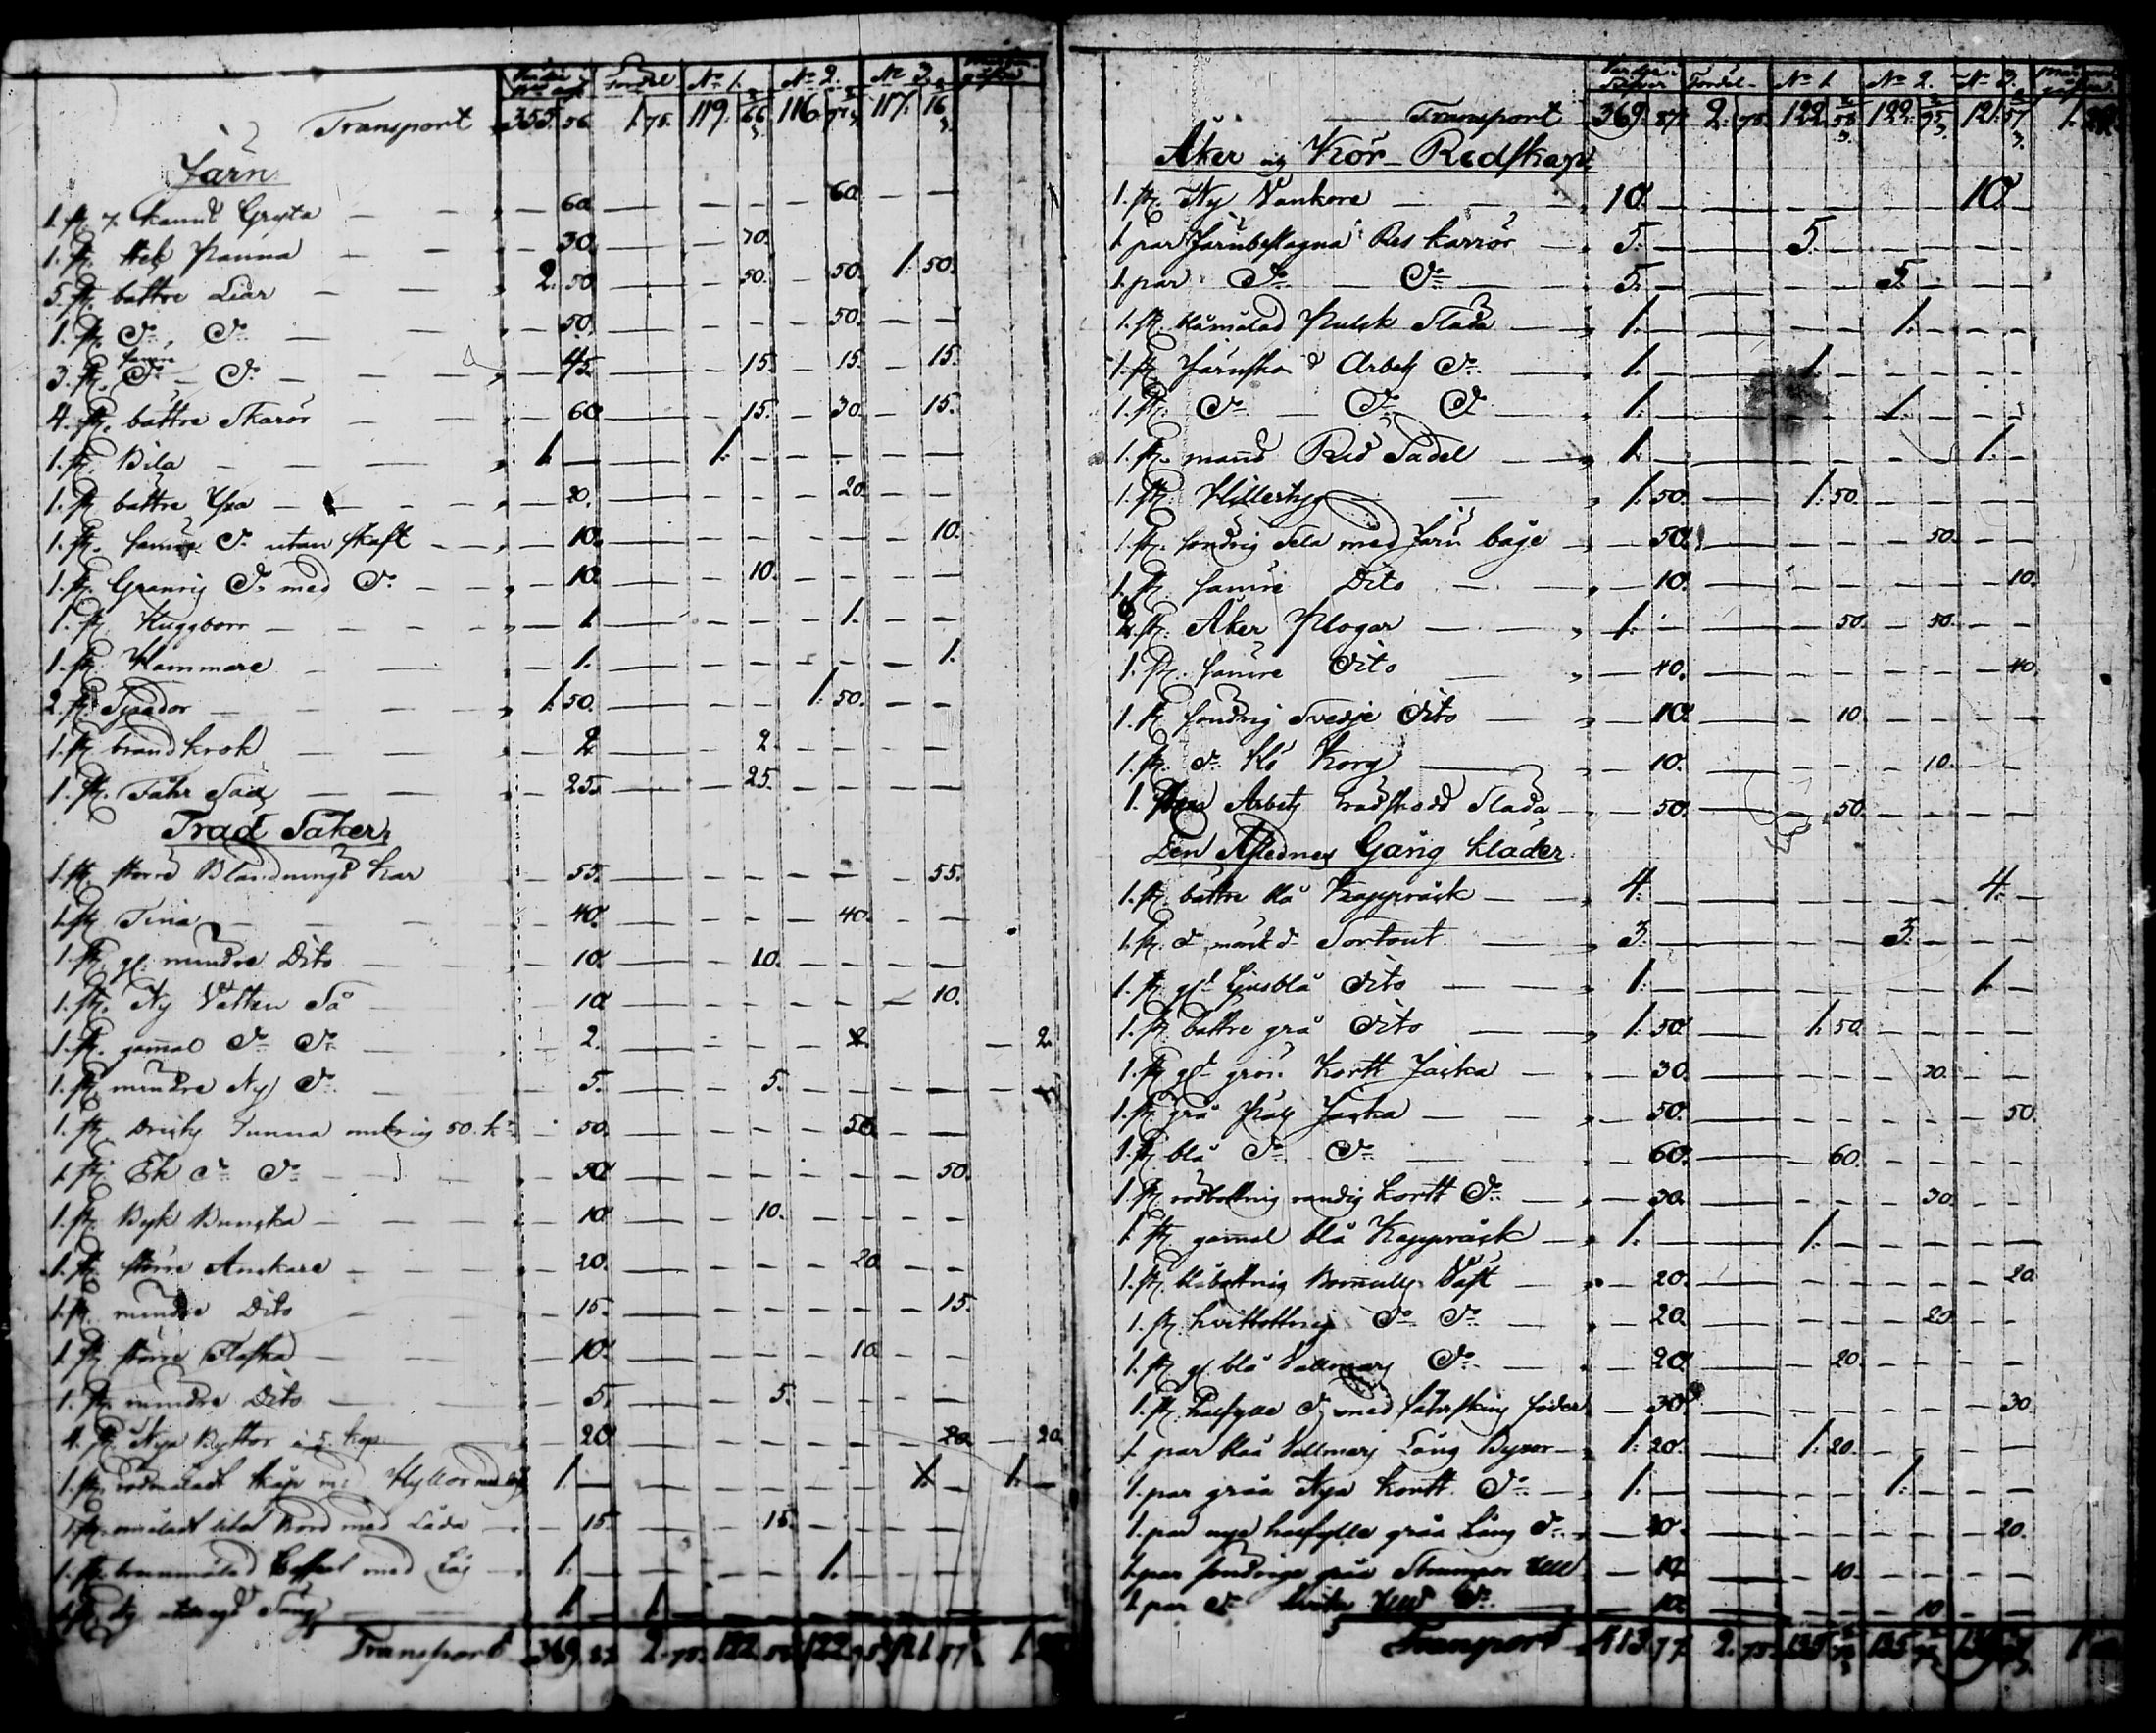 Fördel No 1. No 2. No 3.
Transport 355. 56 1. 75. 119. 66 116. 117. 16
Järn
1. st. 7. kanns Gryta 60 60
1. st. Stek Panna 30. 30.
5. st. bättre Liar 2. 50 50. 50. 1. 50.
1. st. Do Do 50. 50.
3. st. sämre Do Do 45. 15. 15. 15.
4. st. bättre Skäror 60 15. 30. 15.
1. st. Bila 1 1.
1. st. bättre Yxa 20. 20.
1. st. sämre Do utan skaft 10. 10.
1. st. Do med Do 10 10.
1. st. Huggborr 1 1.
1. st. Hammare 1. 1.
2. st. Spador 1. 50. 1. 50.
1. st. brandkrok 2 2.
1. st. Fåhr Sax 25. 25.
Träd Saker
1. st. större Blandnings Kar 55. 55.
1. st. Tina 40. 40.
1. st. gl. mindre Dito 10. 10.
1. st. Ny Vatten Så 10 10.
1. st. gammal Do Do 2. 2. 2.
1. st. mindre Ny Do 5. 5.
1. st. Dricks Tunna omkring 50. kr 50. 50.
1. st. Ek Do Do 50 50.
1. st. Byk Bunka 10 10.
1. st. större Ankare 20. 20
1. st. mindre Dito 15. 15.
1. st. större Flaska 10. 10
1. st. mindre Dito 5. 5.
4. st. Nya Byttor à 5. kop 20 20 20
1. st. rödmålat skåp med Hyllor 1. 1. 1.
1. st. omåladt litet Bord med Låda 15. 15.
1. st. brunmålad med Lås 1. 1.
1. st. Ny Säng 1. 1.
Transport 369. 87 2. 75. 122. 58 122. 95 121. 57 1.
Fördel No 1 No 2. No 3.
Transport 369. 87. 2. 75. 122. 58 122. 95 121. 57 1. 22.
Åker og Kör-Redskap
1. st. Ny Vankere 10. 10.
1. par Järnbeslagna Res kärror 5. 5.
1. par Do Do 5. 5.
1. st. blåmålad Släda 1. 1.
1. st. Järnskod Arbets Do 1. 1.
1. st. Do Do Do 1. 1.
1. st. manns Rid Sadel 1. 1.
1. st. Hillertyg 1. 50. 1. 50.
1. st. söndrig Sela med Järn båge 50. 50.
1. st. sämre Dito 10. 10.
2. st. Åker Plogar 1. 50. 50.
1. st. sämre Dito 40. 40.
1. st. söndrig Svedje Dito 10. 10
1. st. Do Hö Korg 10. 10.
1. Arbets trädskodd Släda 50. 50.
Den Aflednes Gång kläder
1. st. bättre blå Kappråck 4. 4.
1. st. Do mörk Do Sortout 3. 3.
1. st. gl. Ljusblå Dito 1. 1.
1. st. bättre grå Dito 1. 50. 1. 50.
1. st. gl. grön Kortt Jacka 30. 30.
1. st. grå Jacka 50. 50.
1. st. blå Do Do 60. 60.
1. st. rödbottnig randig kortt Do 30. 30.
1. st. gammal blå Kappråck 1. 1.
1. st. blåbottnig Bomulls Väst 20. 20
1. st. hvitbottnig Do Do 20. 20
1. st. gl. blå Vallmars Do 20 20.
1. st. halfylle Do med fårskins foder 30 30
1. par blåa Vallmars Lång Byxor 1. 20. 1. 20.
1. par gråa Nya kortt Do 1. 1.
1. par nya halfylle gråa Lång Do 20. 20.
1. par söndriga gråa Strumpor Ull 10 10.
1. par Do hvita Ull Do 10. 10
Transport 413. 77. 2. 75. 135.